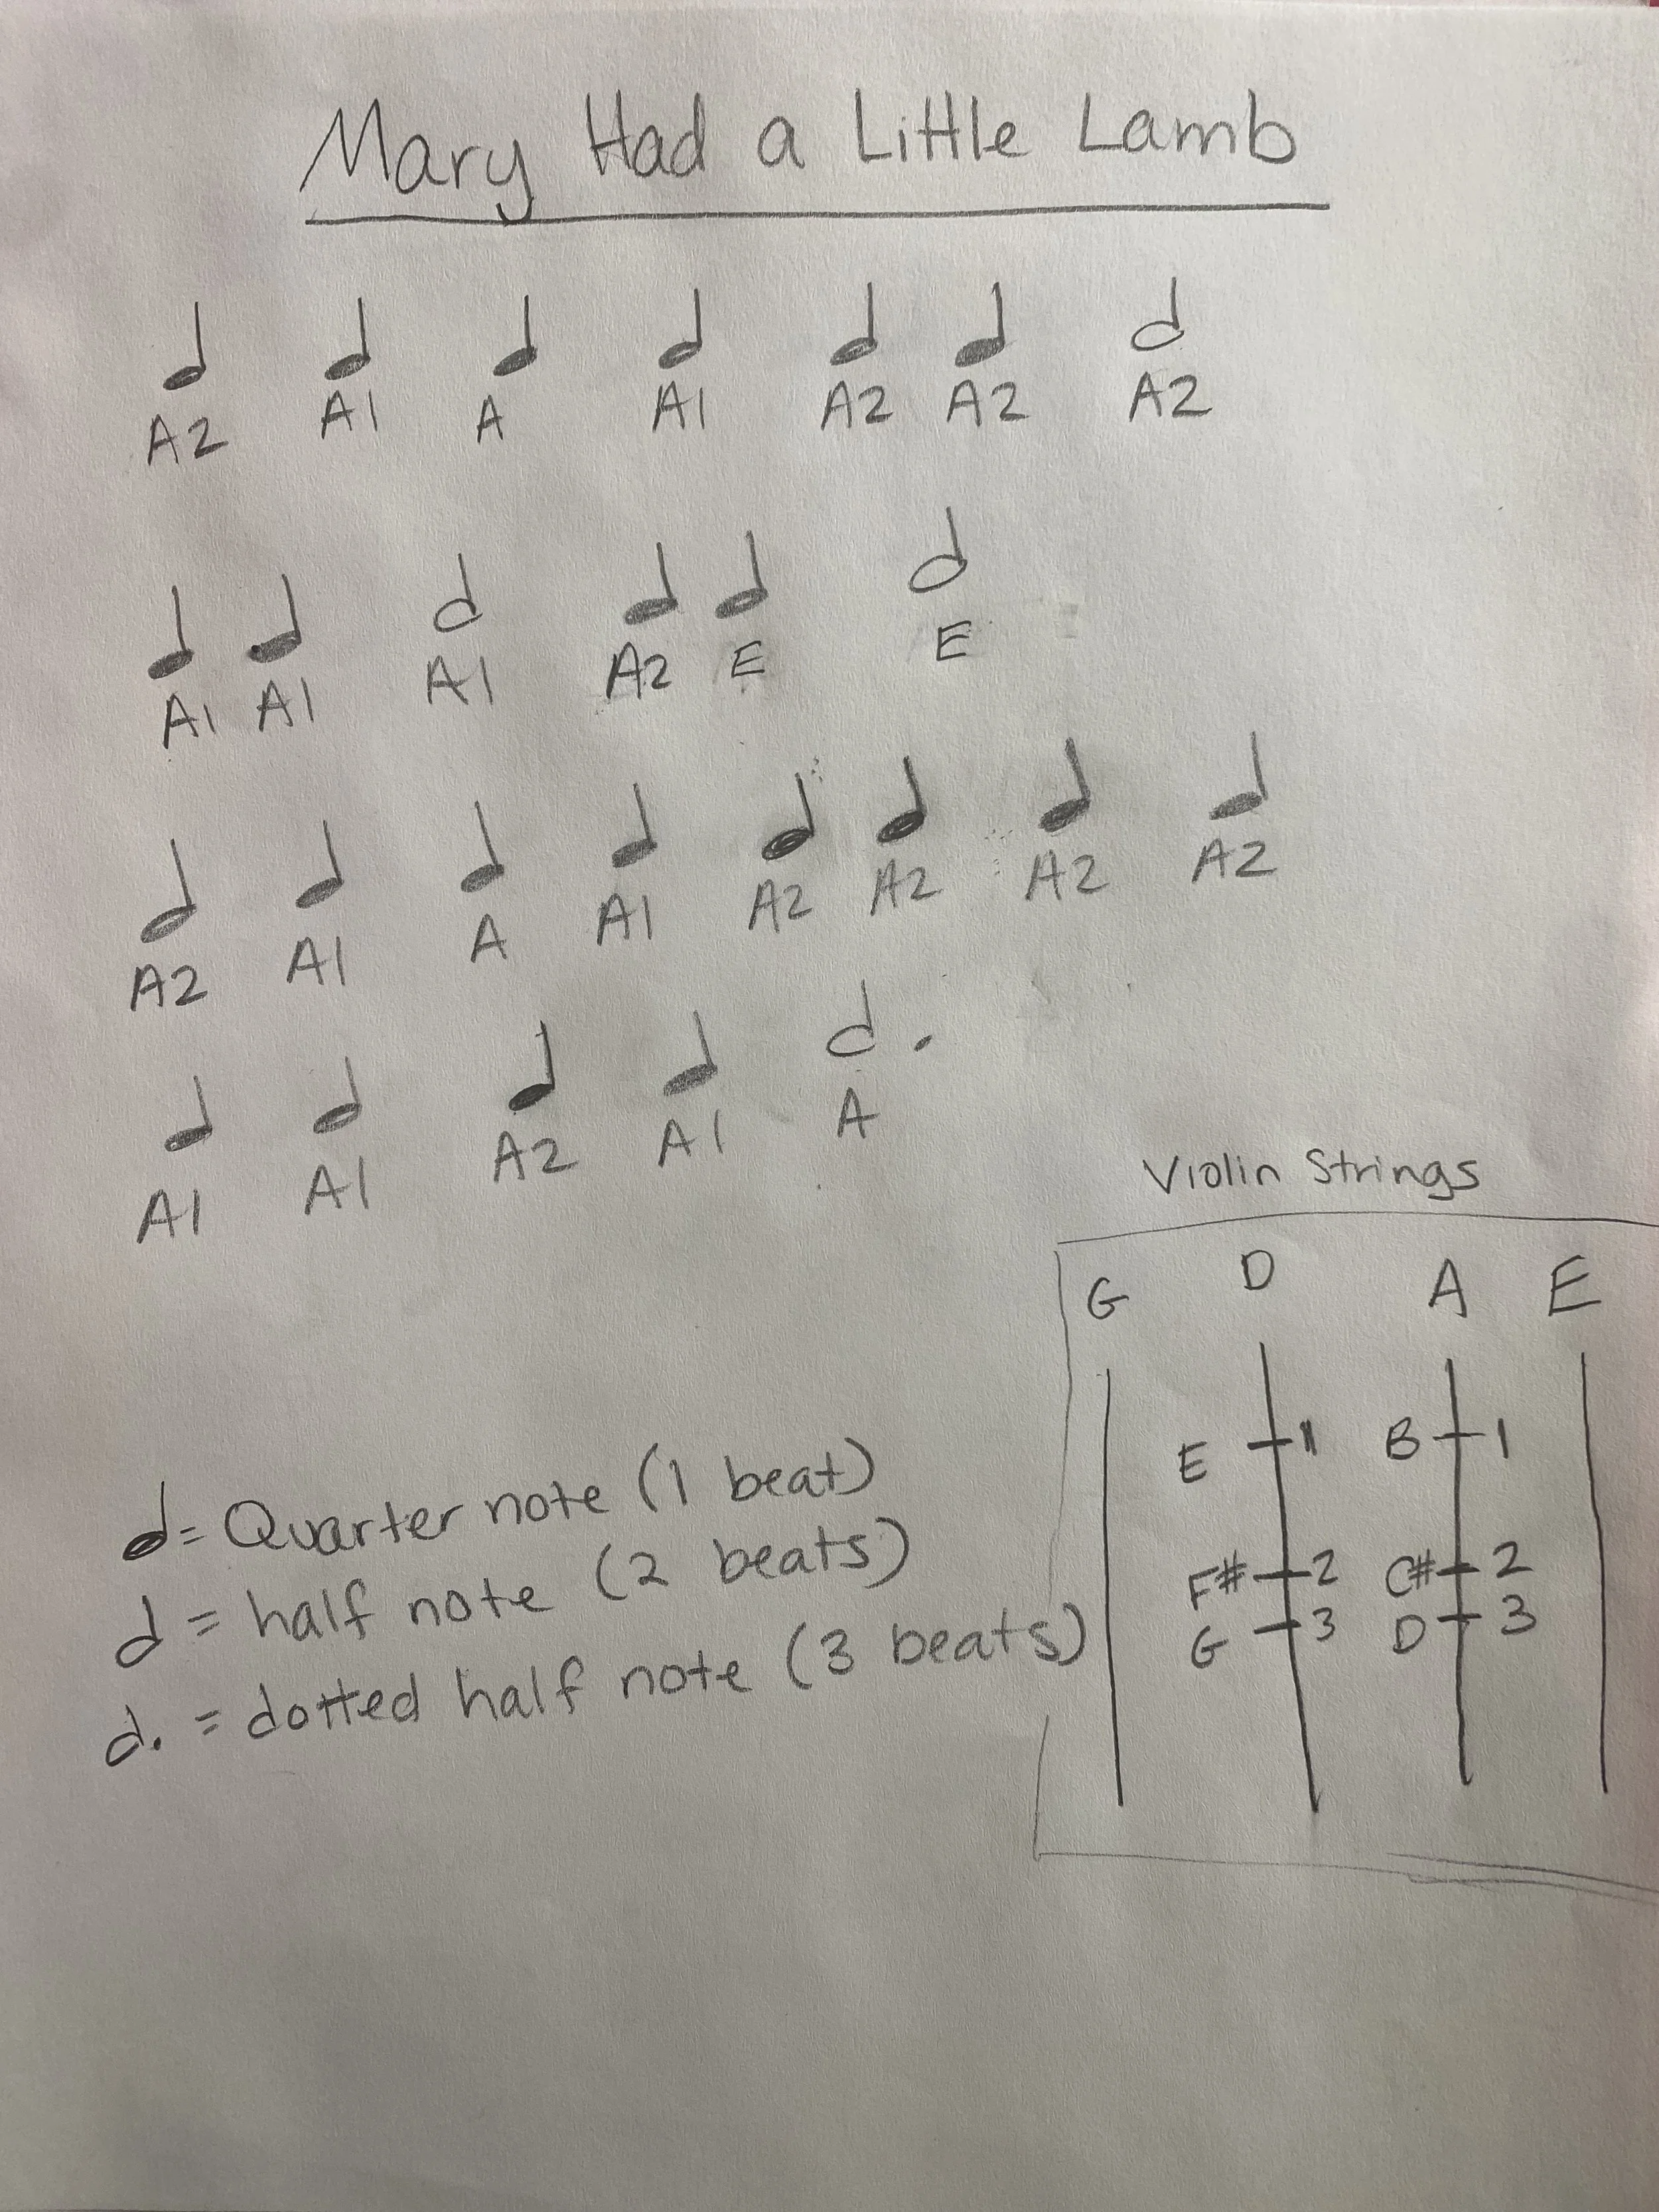 Mary Had a Little Lamb
A2 A1 A A1 A2 A2 A2
A1 A1 A1 A2 E E
A2 A1 A A1 A2 A2 A2 A2
A1 A1 A2 A1 A
Violin Strings
G D A E
E 1 B 1
F# 2 C# 2
G 3 D 3
= Quarter note (1 beat)
= half note (2 beats)
= dotted half note (3 beats)